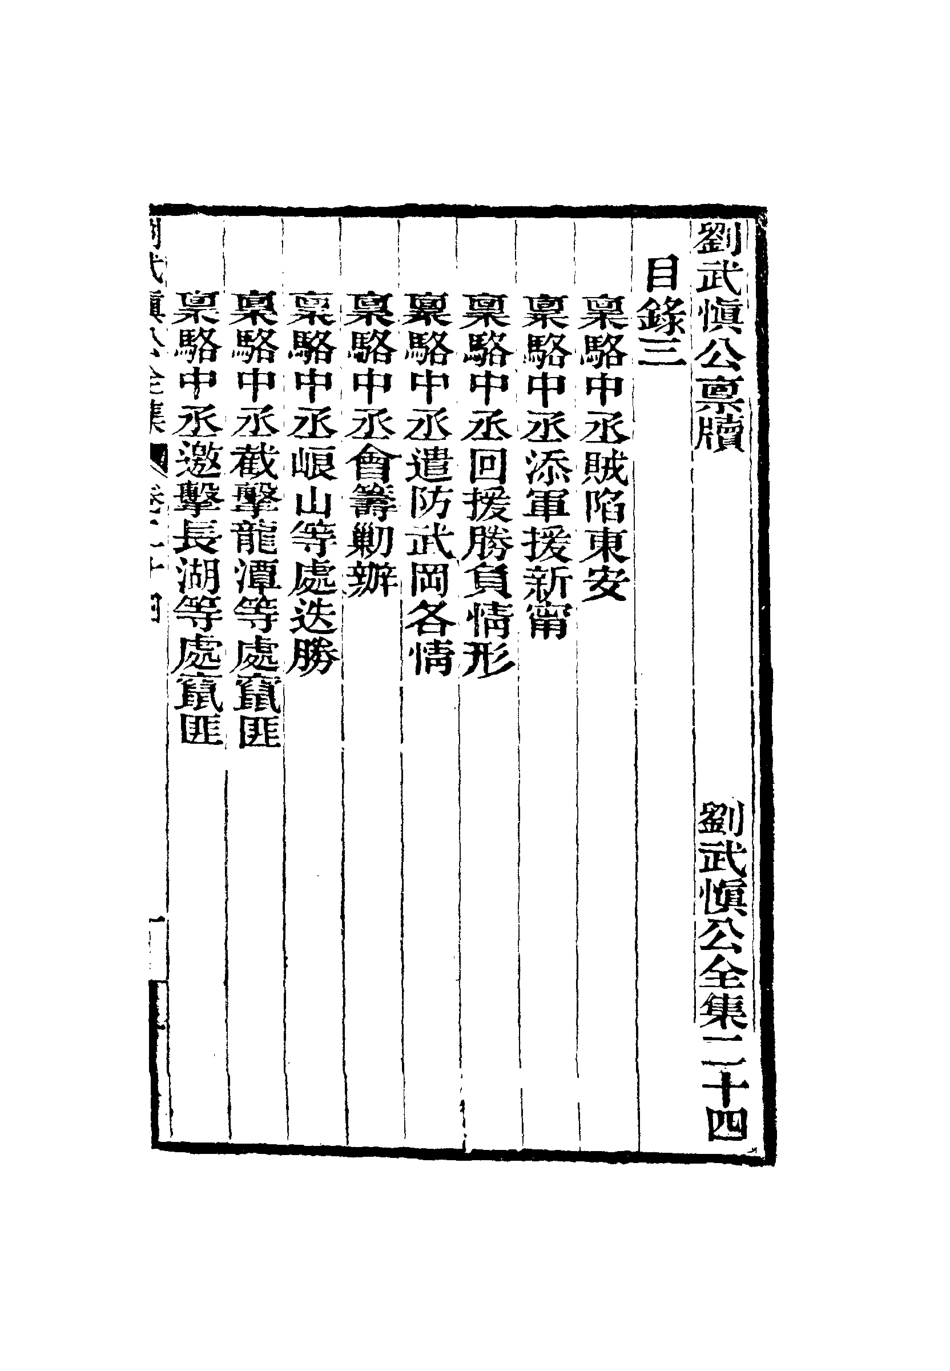 劉武愼公稟牘
劉武愼公全集二十四
目錄三
稟駱中丞賊陷東安
稟駱中丞添軍援新甯
稟駱中丞回援勝負情形
稟駱中丞遣防武岡各情
稟駱中丞會籌剿辦
稟駱中丞崀山等處迭勝
稟駱中丞截擊龍潭等處竄匪
稟駱中丞邀擊長湖等處竄匪
劉武愼公全集
卷二十四
一